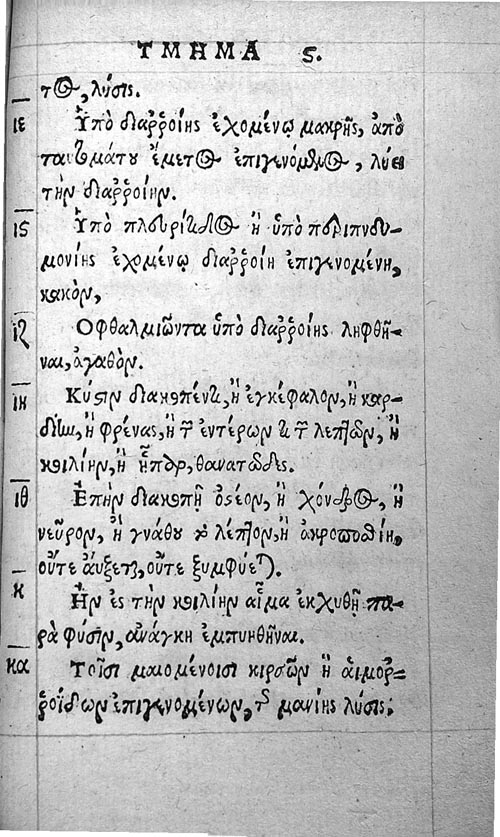 ΤΜΗΜΑ ς.
τος, λύσις.
ιε Ὑπὸ διαῤῥοίης ἐχομένῳ μακρῆς, ἀπὸ
ταυτομάτου ἔμετος ἐπιγενόμενος, λύει
τὴν διαῤῥοίην.
ις Ὑπὸ πλευρίτιδος ἢ ὑπὸ περιπνευ-
μονίης ἐχομένῳ διαῤῥοίη ἐπιγενομένη,
κακὸν,
ιζ Οφθαλμιῶντα ὑπὸ διαῤῥοίης ληφθῆ-
ναι, ἀγαθὸν.
ιη Κύστιν διακοπέντι, ἢ ἐγκέφαλον, ἢ καρ-
δίην, ἢ φρένας, ἢ τῶν ἐντέρων τι τῶν λεπτῶν, ἢ
κοιλίην, ἢ ἧπαρ, θανατῶδες.
ιθ Ἐπὴν διακοπῇ ὀστέον, ἢ χόνδρος, ἢ
νεῦρον, ἢ γνάθου τὸ λέπτον, ἢ ἀκροποσθίη,
οὔτε ἄυξεται, οὔτε ξυμφύεται.
κ Ἢν ἐς τὴν κοιλίην αἷμα ἐκχυθῇ πα-
ρὰ φύσιν, ἀνάγκη ἐμπυηθῆναι.
κα Τοῖσι μαιομένοισι κιρσῶν ἢ αἱμοῤ-
ῥοΐδων ἐπιγενομένων, τῆς μανίης λύσις.